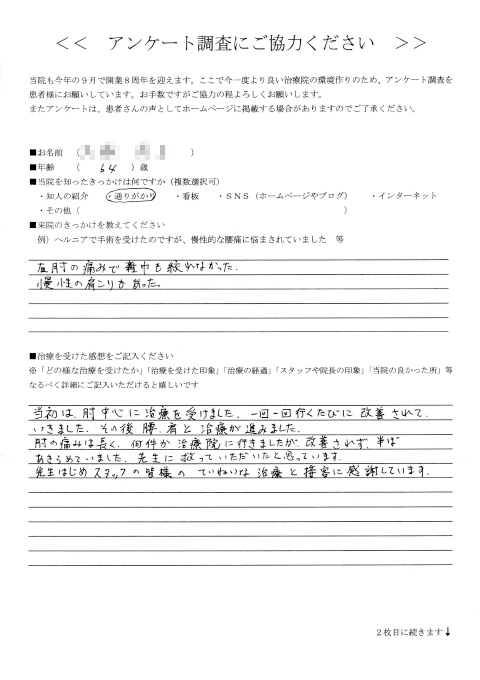 << アンケート調査にご協力ください >>
当院も今年の9月で開業8周年を迎えます。ここで今一度より良い治療院の環境作りのため、アンケート調査を
患者様にお願いしています。お手数ですがご協力の程よろしくお願いします。
またアンケートは、患者さんの声としてホームページに掲載する場合がありますのでご了承ください。
■お名前 ( )
■年齢 ( 64 )歳
■当院を知ったきっかけは何ですか(複数選択可)
・知人の紹介 ・通りがかり ・看板 ・SNS(ホームページやブログ) ・インターネット
・その他( )
■来院のきっかけを教えてください
例)ヘルニアで手術を受けたのですが、慢性的な腰痛に悩まされていました 等
右肘の痛みで雑巾も絞れなかった.
慢性の肩こりもあった。
■治療を受けた感想をご記入ください
※「どの様な治療を受けたか」「治療を受けた印象」「治療の経過」「スタッフや院長の印象」「当院の良かった所」等
なるべく詳細にご記入いただけると嬉しいです
当初は、肘中心に治療を受けました. 一回一回行くたびに改善されて.
いきました. その後 腰. 肩と治療が進みました.
肘の痛みは長く、何件か治療院に行きましたが、改善されず、半ば
あきらめていました. 先生に救っていただいたと思っています.
先生はじめスタッフの皆様のていねいな治療と接客に感謝しています.
2枚目に続きます↓